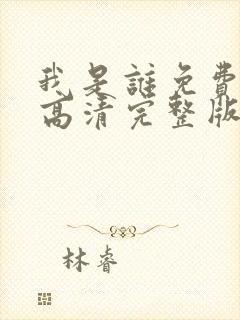 我是誰免費
高清完整版
林睿